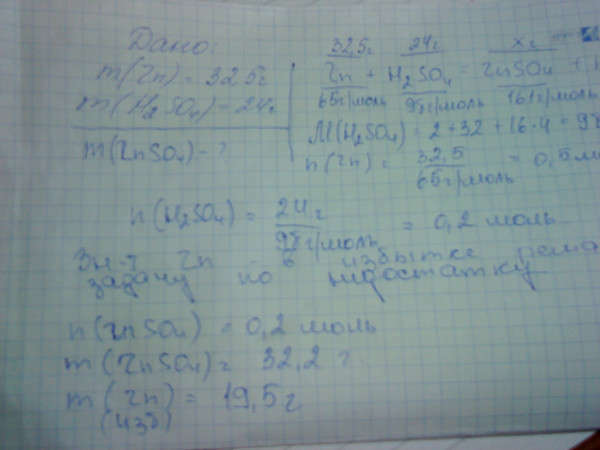 Дано:
m(Zn) = 32,5г
m(H₂SO₄) = 24г
m(ZnSO₄) - ?
32,5г 24г xг
Zn + H₂SO₄ = ZnSO₄ +
65г/моль 98г/моль 161г/моль
M(H₂SO₄) = 2+32+16·4 = 98
n(Zn) = 32,5 / 65г/моль = 0,5 мо
n(H₂SO₄) = 24г / 98г/моль = 0,2 моль
Зн-т Zn в избытке реша
задачу по недостатку
n(ZnSO₄) = 0,2 моль
m(ZnSO₄) = 32,2 г
m(Zn) = 19,5 г
(изб)